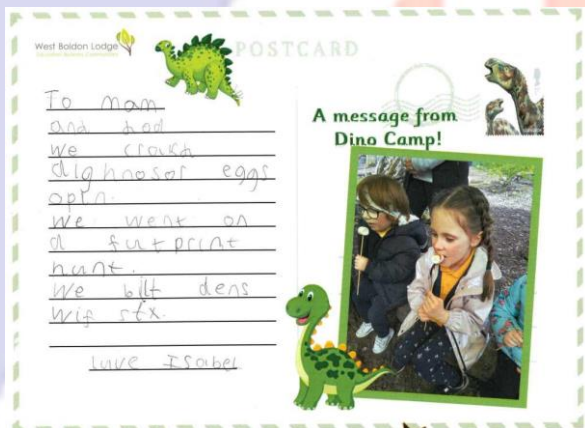 West Boldon Lodge
POSTCARD
To mam
and dad
we crackd
dighnosor eggs
optn.
we went on
a futprint
hunt.
We bilt dens
wif stx.
luve Isabel
A message from
Dino Camp!